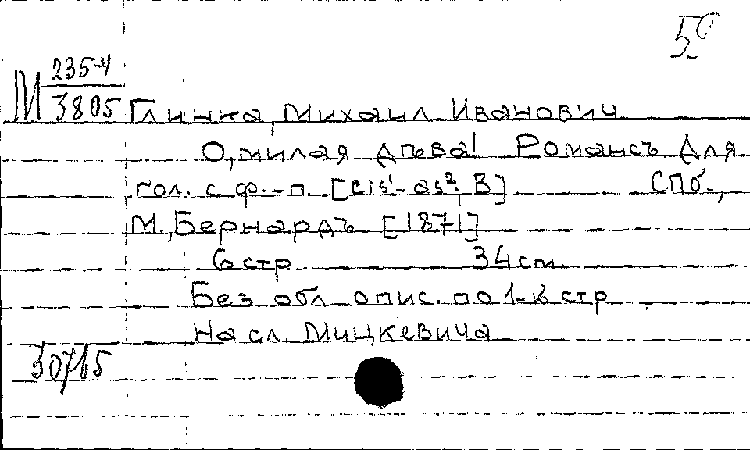 50
М 235-4
3805 Глинка, Михаил Иванович
О, милая дѣва! Романсъ для
гол. с ф.-п. [cis¹-as² B] СПб.,
М., Бернардъ [1871]
6 стр 34 cm
Без обл опис. по 1-й стр
На сл. Мицкевича
30715